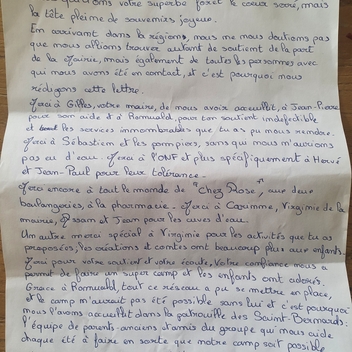 votre superbe forêt le cœur serré, mais
la tête pleine de souvenirs joyeux.
En arrivant dans la région, nous ne nous doutions pas
que nous allions trouver autant de soutient de la part
de la Mairie, mais également de toutes les personnes avec
qui nous avons été en contact, et c'est pourquoi nous
rédigeons cette lettre.
Merci à Gilles, votre maire, de nous avoir accueillit, à Jean-Pierre
pour son aide et à Romuald, pour ton soutient indéfectible
et les services innombrables que tu as pu nous rendre.
Merci à Sébastien et les pompiers, sans qui nous n'aurions
pas eu d'eau. Merci à l'ONF et plus spécifiquement à Hervé
et Jean-Paul pour leur tolérance.
Merci encore à tout le monde de "Chez Rose", aux deux
boulangeries, à la pharmacie. Merci à Virginie de la
mairie, et Jean pour les cuves d'eau.
Un autre merci spécial à Virginie pour les activités que tu as
proposées, les créations et contes ont beaucoup plus aux enfants.
Merci pour votre soutient et votre écoute, votre confiance nous a
permit de faire un super camp et les enfants ont adorés.
Grâce à Romuald, tout ce réseau a pu se mettre en place,
et le camp n'aurait pas été possible sans lui et c'est pourquoi
nous l'avons accueillit dans la patrouille des Saint-Bernards :
l'équipe de parents-anciens-d'amis du groupe qui nous aide
chaque été à faire en sorte que notre camp soit possible